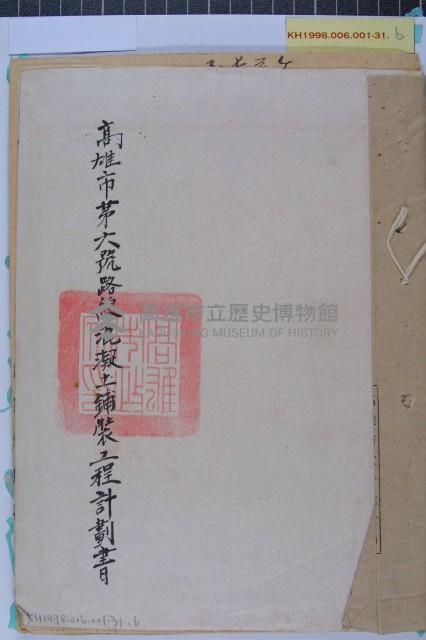 KH1998.006.001-31. 6
高雄市第六號路線混凝土鋪裝工程計劃書
高雄市立歷史博物館
KAOHSIUNG MUSEUM OF HISTORY
KH1998.006.001-31.6